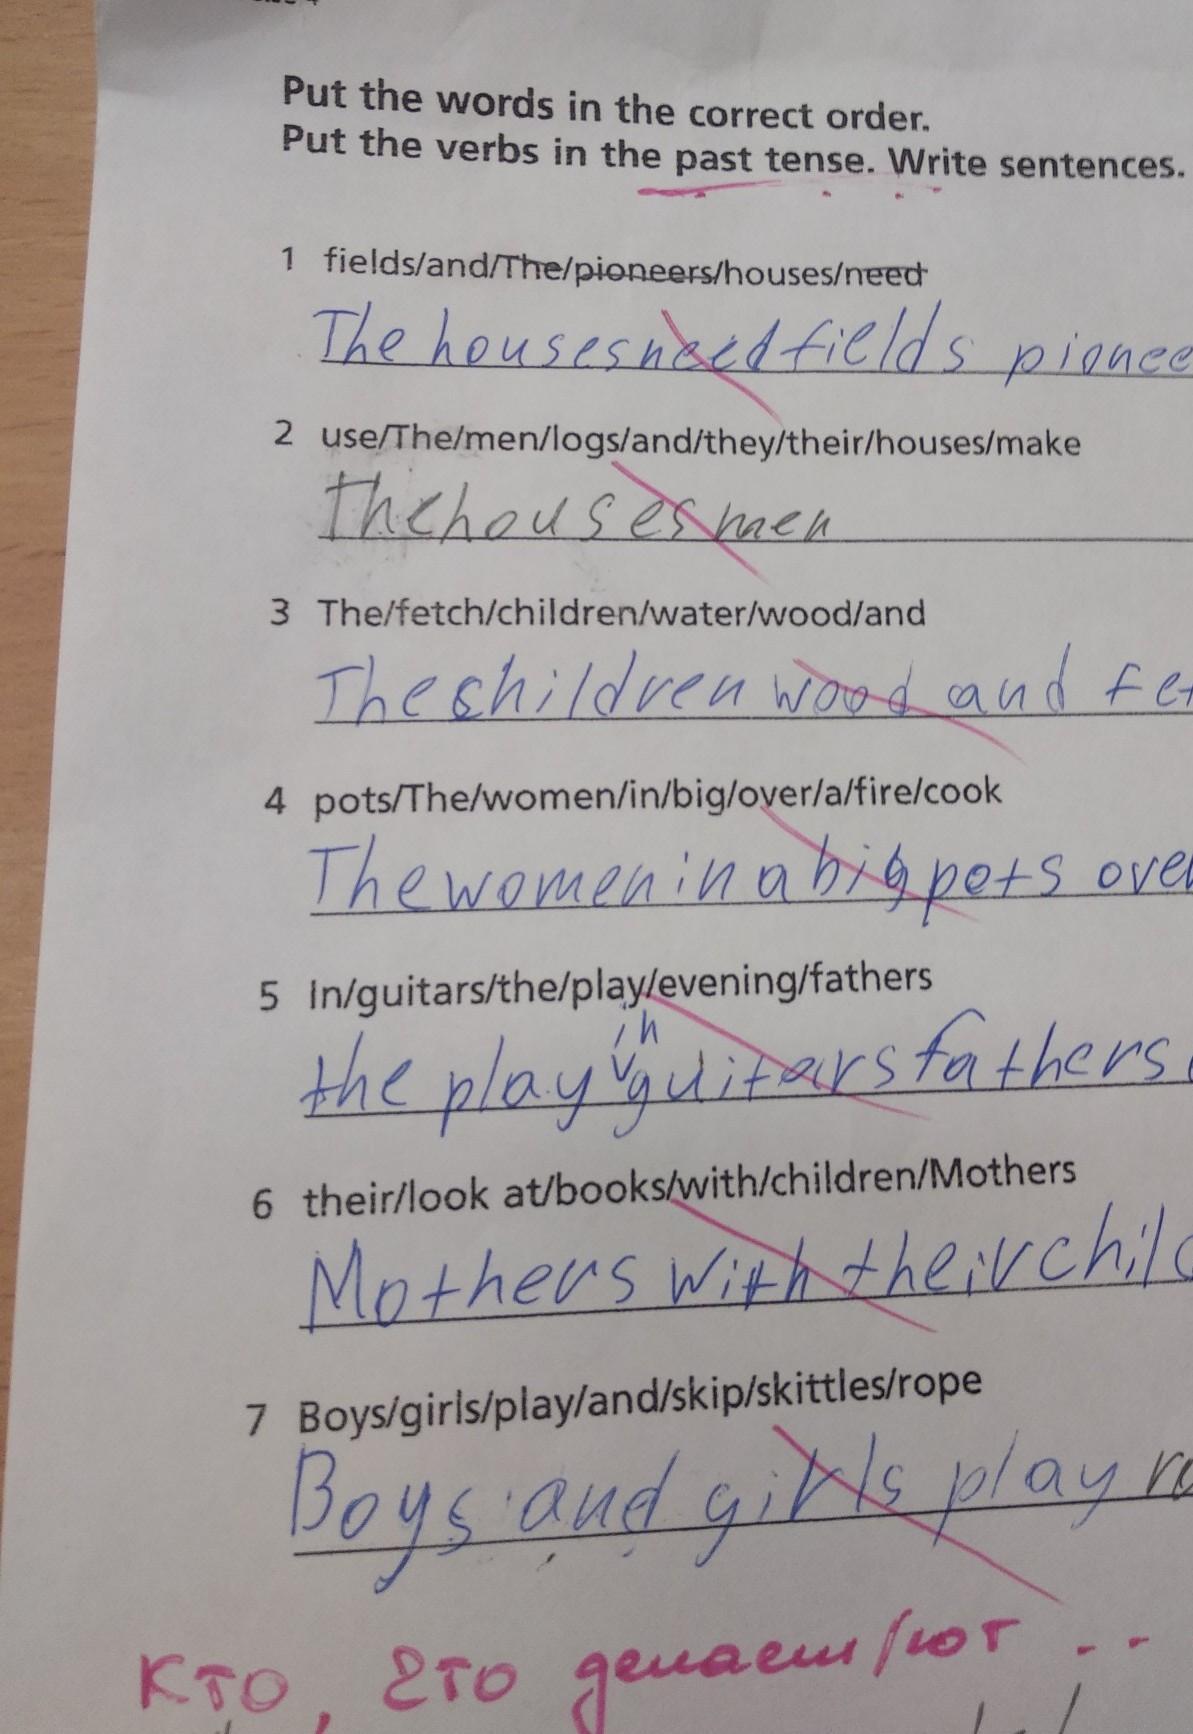 Put the words in the correct order.
Put the verbs in the past tense. Write sentences.
1 fields/and/The/pioneers/houses/need
The houses need fields pionee
2 use/The/men/logs/and/they/their/houses/make
The houses men
3 The/fetch/children/water/wood/and
The children wood and fet
4 pots/The/women/in/big/over/a/fire/cook
The women in a big pots over
5 In/guitars/the/play/evening/fathers
in
the play guitars fathers
6 their/look at/books/with/children/Mothers
Mothers with their child
7 Boys/girls/play/and/skip/skittles/rope
Boys and girls play ro
Кто, что делает/ют ..